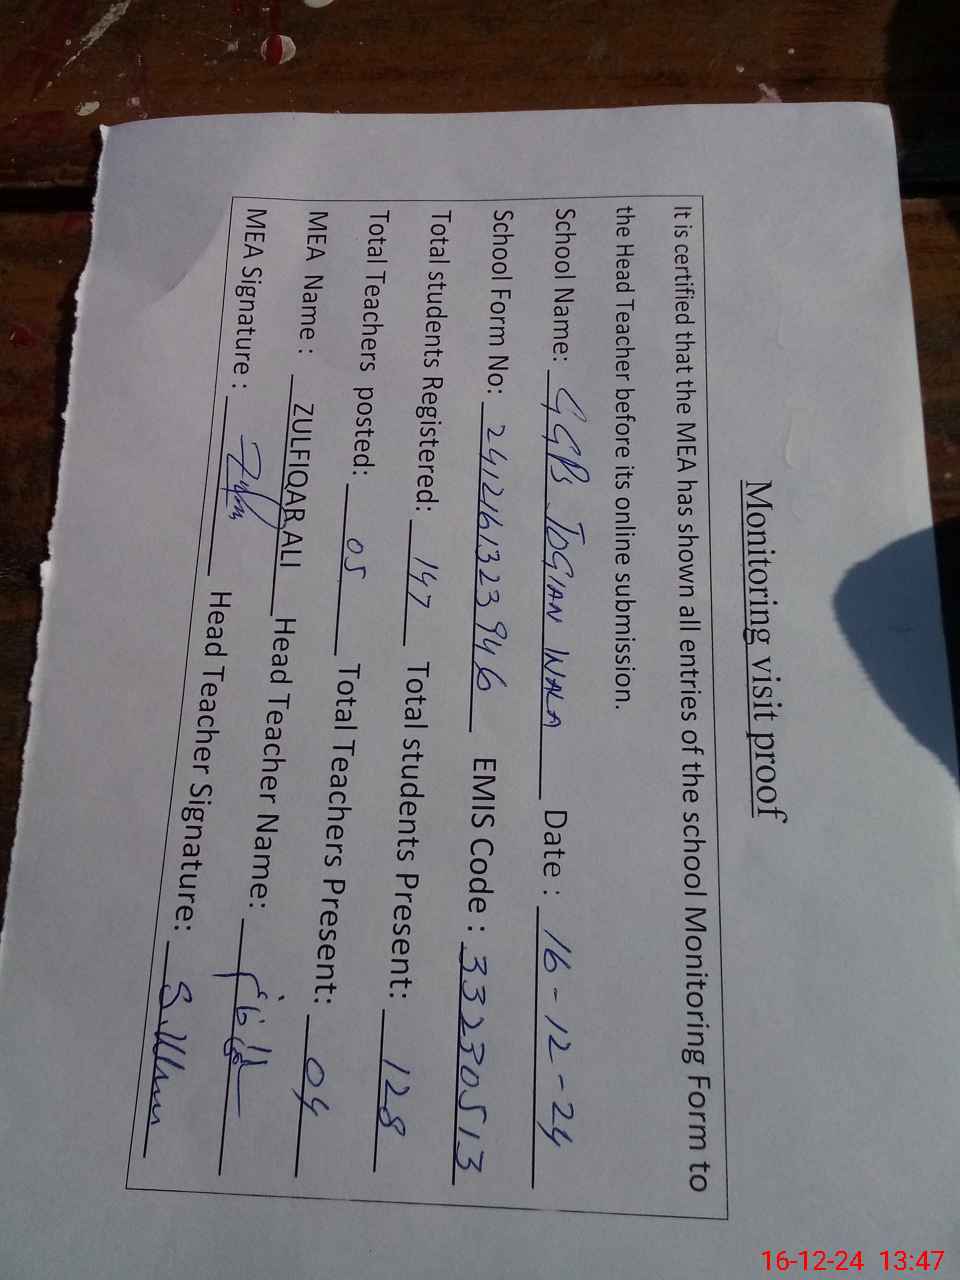 Monitoring visit proof
It is certified that the MEA has shown all entries of the school Monitoring Form to
the Head Teacher before its online submission.
School Name: GGPS JOGIAN WALA Date : 16-12-24
School Form No: 241216132 3946 EMIS Code : 33230513
Total students Registered: 147 Total students Present: 128
Total Teachers posted: 05 Total Teachers Present: 04
MEA Name : ZULFIQAR ALI Head Teacher Name:
MEA Signature : Head Teacher Signature:
16-12-24 13:47